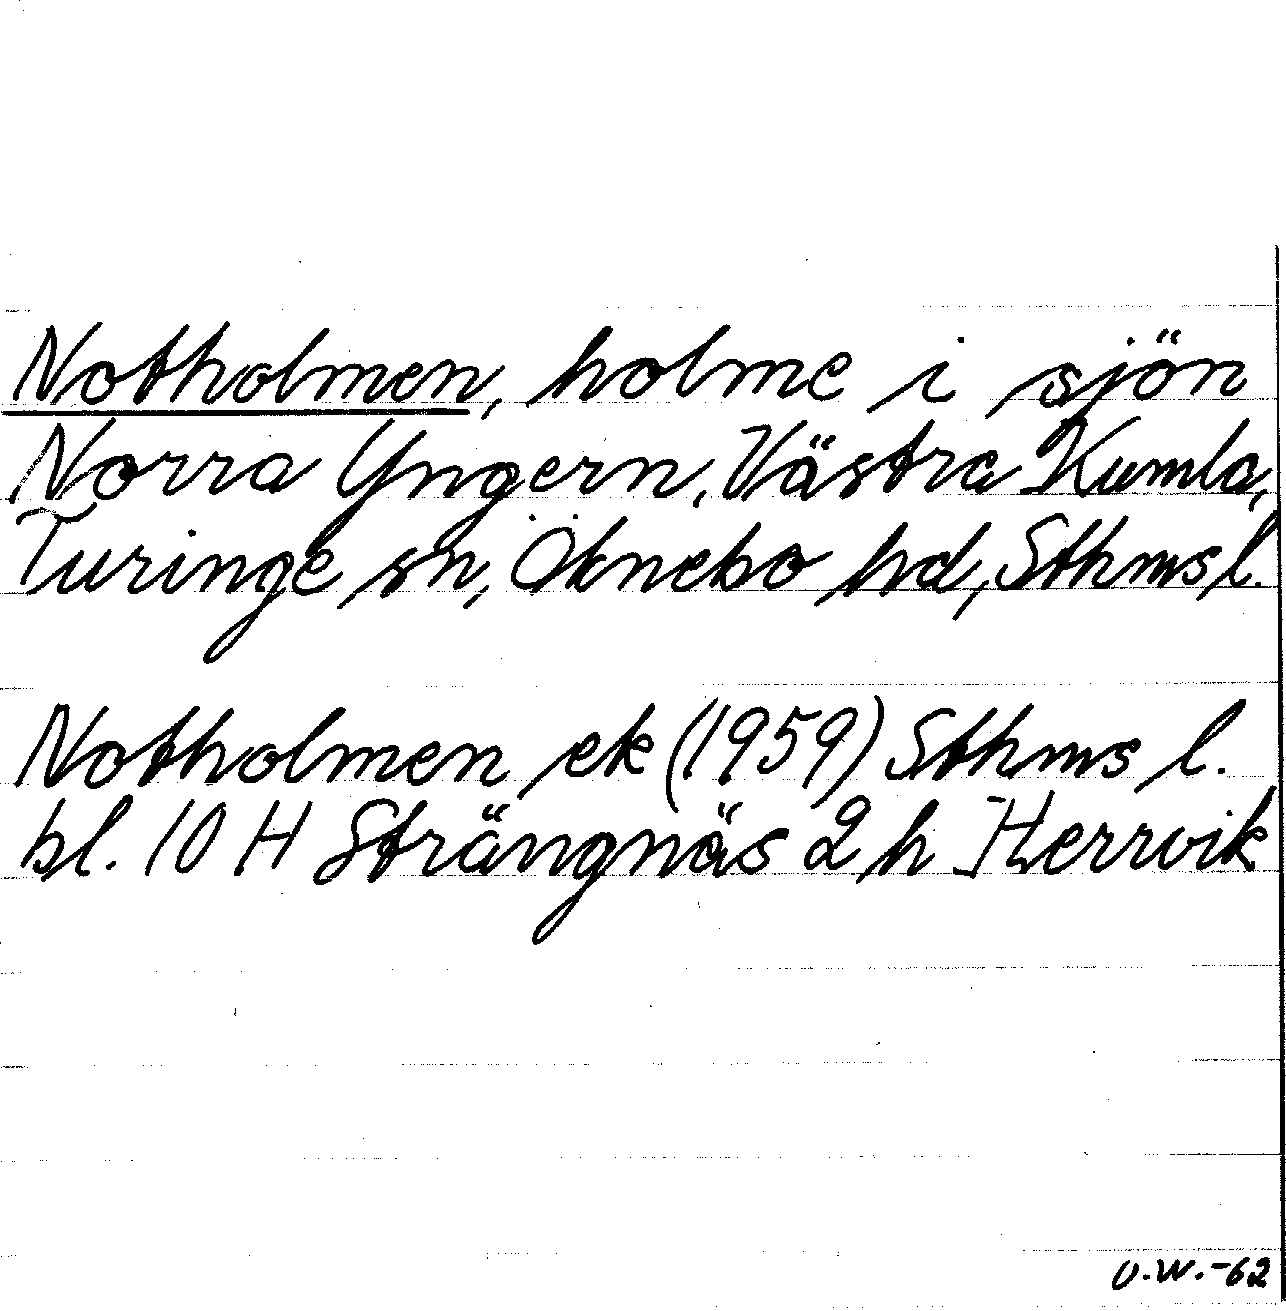 Notholmen, holme i sjön
Norra Yngern, Västra Kumla,
Turinge sn, Öknebo hd, Sthms l.
Notholmen ek (1959) Sthms l.
bl. 10 H Strängnäs 2 h Herrvik
U.W.-62